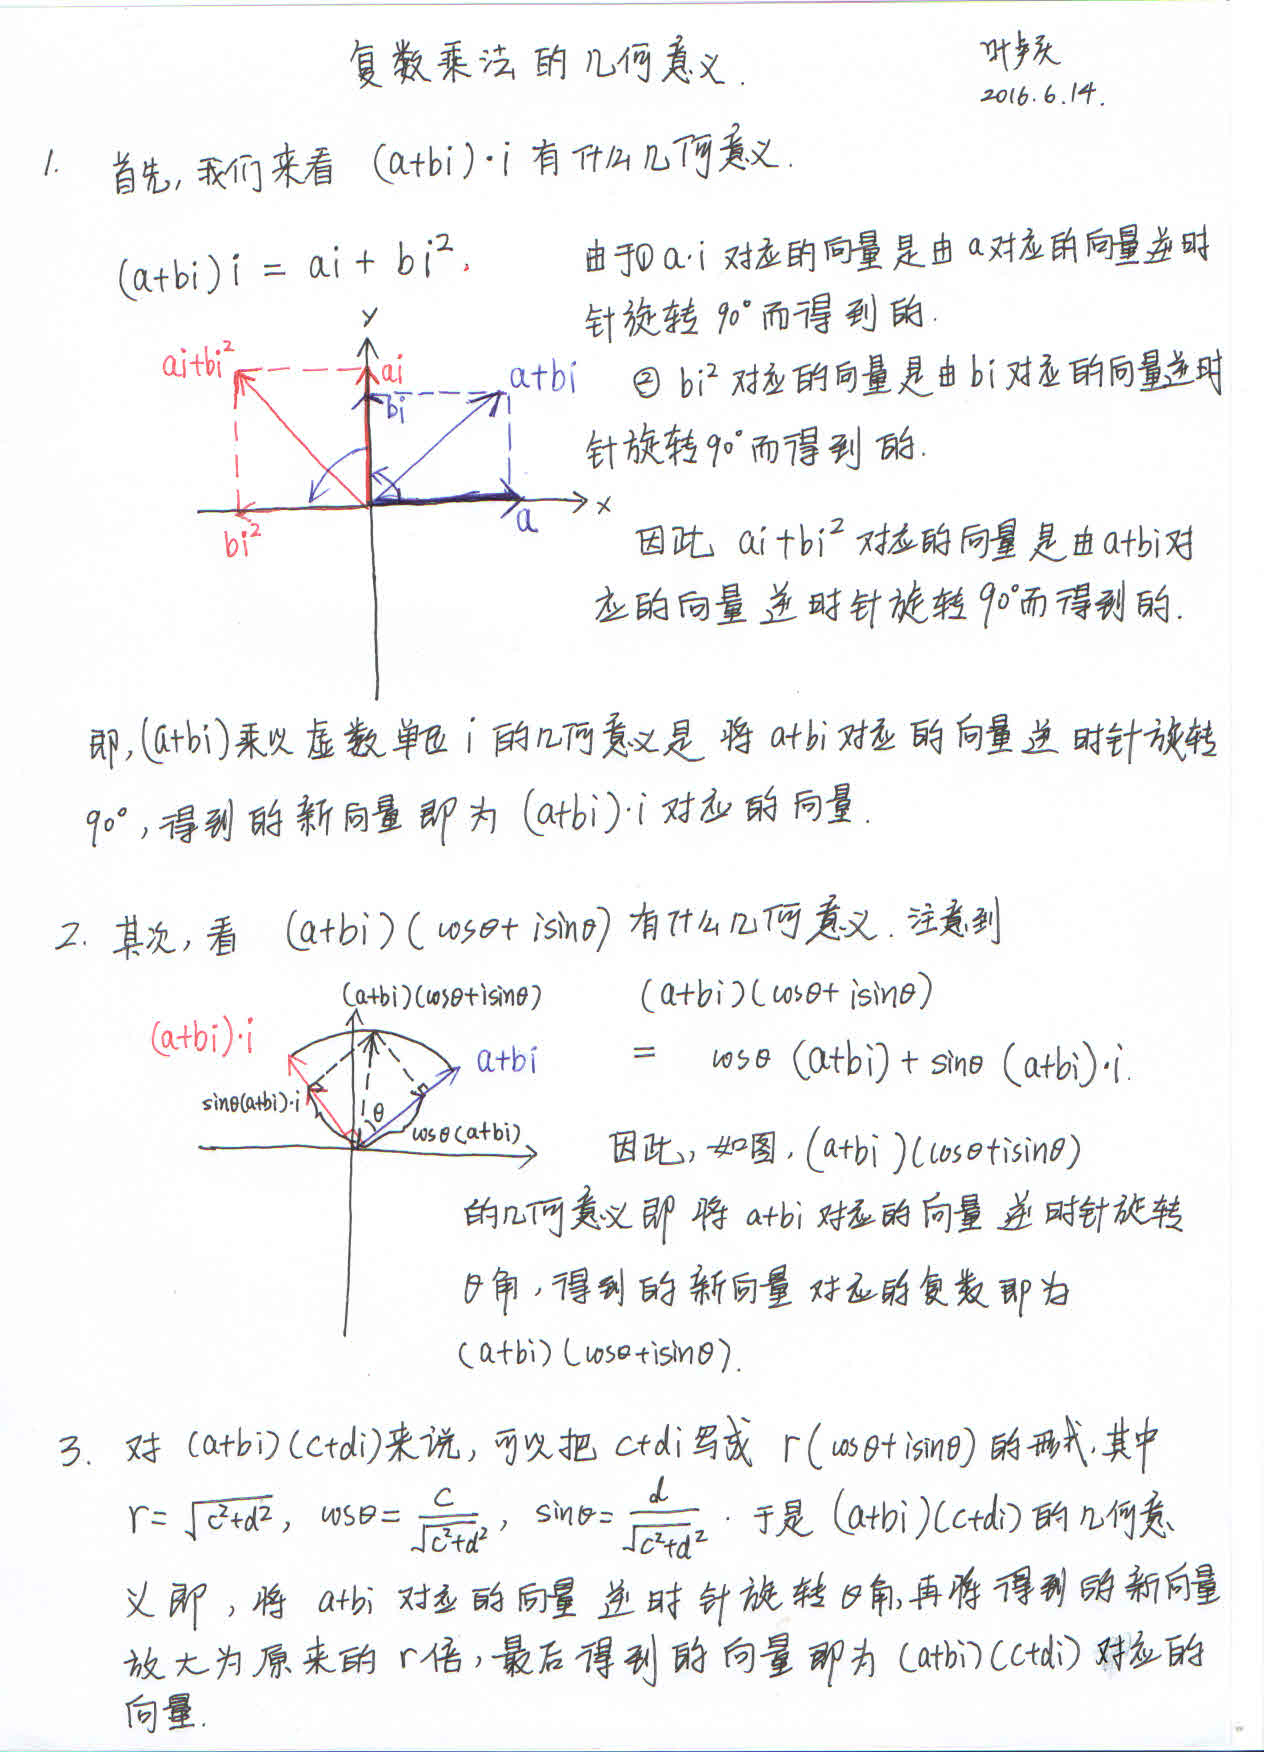 复数乘法的几何意义.
叶卢庆
2016.6.14.
1. 首先,我们来看 (a+bi)·i 有什么几何意义.
(a+bi)i = ai + bi².
由于① a·i 对应的向量是由 a 对应的向量逆时
针旋转 90° 而得到的.
② bi² 对应的向量是由 bi 对应的向量逆时
针旋转 90° 而得到的.
因此 ai+bi² 对应的向量是由 a+bi 对
应的向量逆时针旋转 90° 而得到的.
y
ai+bi²
ai
bi
a+bi
x
a
bi²
即,(a+bi)乘以虚数单位 i 的几何意义是将 a+bi 对应的向量逆时针旋转
90°,得到的新向量即为 (a+bi)·i 对应的向量.
2. 其次,看 (a+bi)(cosθ+isinθ) 有什么几何意义.注意到
(a+bi)(cosθ+isinθ)
= cosθ (a+bi) + sinθ (a+bi)·i.
(a+bi)(cosθ+isinθ)
(a+bi)·i
a+bi
sinθ(a+bi)·i
θ
cosθ(a+bi)
因此,如图,(a+bi)(cosθ+isinθ)
的几何意义即将 a+bi 对应的向量逆时针旋转
θ角,得到的新向量对应的复数即为
(a+bi)(cosθ+isinθ).
3. 对 (a+bi)(c+di)来说,可以把 c+di 写成 r(cosθ+isinθ) 的形式.其中
r=√(c²+d²), cosθ=c/√(c²+d²), sinθ=d/√(c²+d²). 于是 (a+bi)(c+di) 的几何意
义即,将 a+bi 对应的向量逆时针旋转θ角,再将得到的新向量
放大为原来的 r 倍,最后得到的向量即为 (a+bi)(c+di) 对应的
向量.